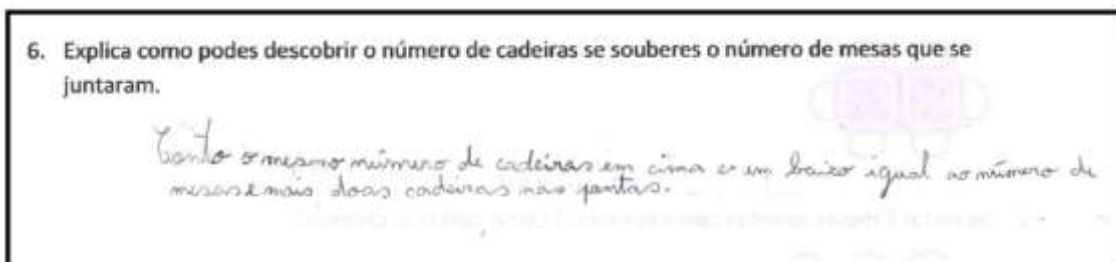 6. Explica como podes descobrir o número de cadeiras se souberes o número de mesas que se
juntaram.
Conto o mesmo número de cadeiras em cima e em baixo igual ao número de
mesas e mais doas cadeiras nas pontas.